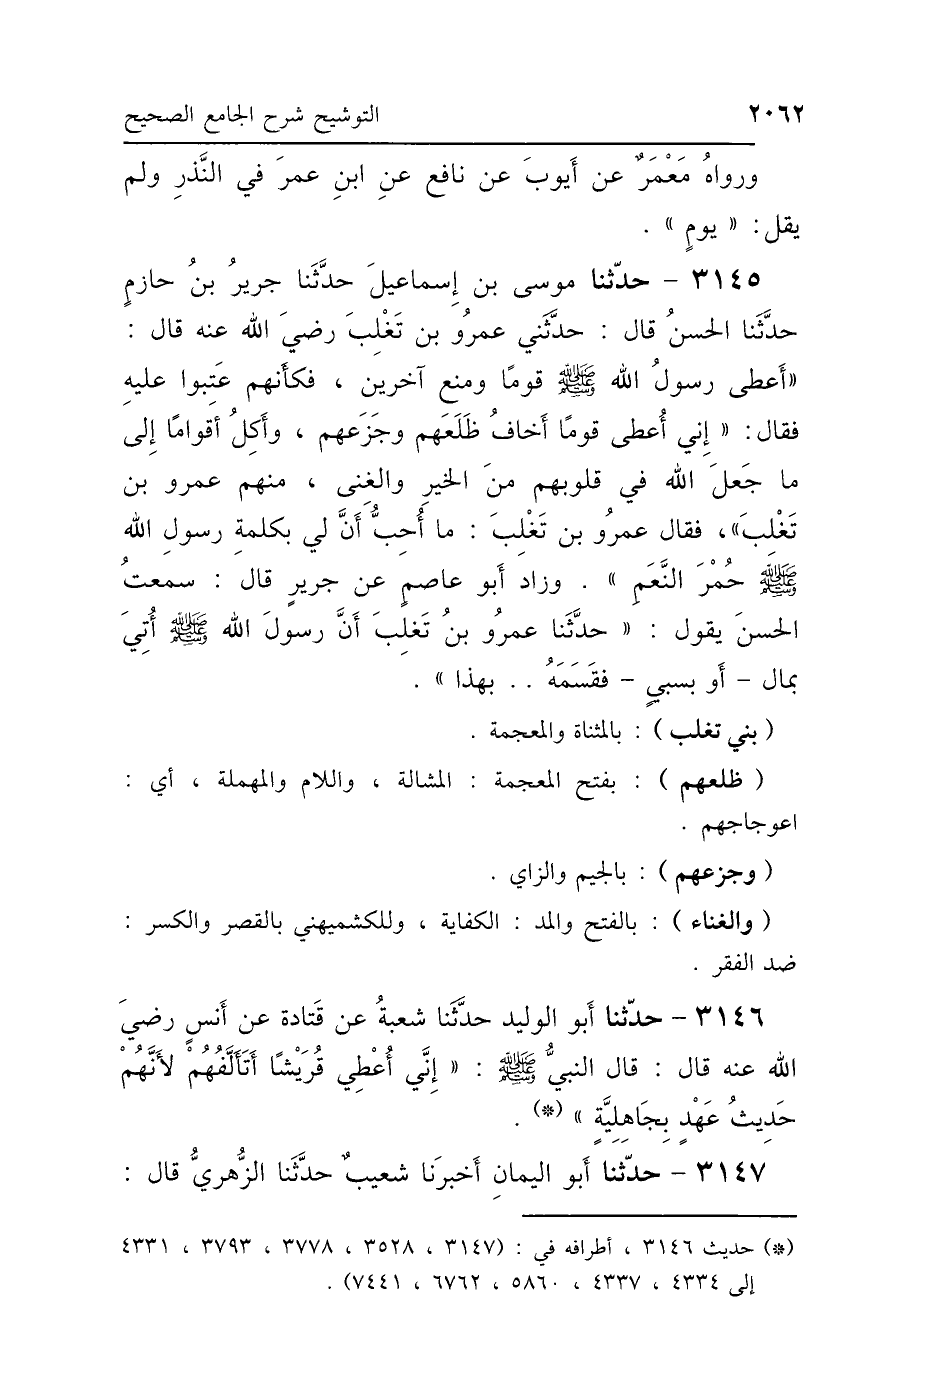 ٢٠٦٢ التوشيح شرح الجامع الصحيح
ورواهُ مَعْمَرٌ عن أَيوبَ عن نافع عنِ ابنِ عمرَ في النَّذرِ ولم
يقل : « يومٍ » .
٣١٤٥ – حدّثنا موسى بن إِسماعيلَ حدَّثَنا جريرُ بنُ حازمٍ
حدَّثَنا الحسنُ قال : حدَّثَني عمرُو بن تَغْلِبَ رضيَ الله عنه قال :
«أَعطى رسولُ الله ﷺ قومًا ومنع آخرين ، فكأَنهم عَتِبوا عليهِ
فقال : « إِني أُعطى قومًا أَخافُ ظَلَعَهم وجَزَعهم ، وأَكِلُ أقوامًا إِلى
ما جَعلَ الله في قلوبهم منَ الخيرِ والغِنى ، منهم عمرو بن
تَغْلِبَ»، فقال عمرُو بن تَغْلِبَ : ما أُحِبُّ أَنَّ لي بكلمةِ رسولِ الله
ﷺ حُمْرَ النَّعَمِ » . وزاد أَبو عاصمٍ عن جريرٍ قال : سمعتُ
الحسنَ يقول : « حدَّثَنا عمرُو بنُ تَغلِبَ أَنَّ رسولَ الله ﷺ أُتِيَ
بمال – أَو بسبيٍ – فقَسَمَهُ . . بهذا » .
( بني تغلب ) : بالمثناة والمعجمة .
( ظلعهم ) : بفتح المعجمة : المشالة ، واللام والمهملة ، أي :
اعوجاجهم .
( وجزعهم ) : بالجيم والزاي .
( والغناء ) : بالفتح والمد : الكفاية ، وللكشميهني بالقصر والكسر :
ضد الفقر .
٣١٤٦ – حدّثنا أَبو الوليد حدَّثَنا شعبةُ عن قَتادة عن أَنسٍ رضيَ
الله عنه قال : قال النبيُّ ﷺ : « إِنَّي أُعْطِي قُرَيْشًا أَتَأَلَّفُهُمْ لأَنَّهُمْ
حَدِيثُ عَهْدٍ بِجَاهِلِيَّةٍ » (*) .
٣١٤٧ – حدّثنا أَبو اليمانِ أَخبرَنا شعيبٌ حدَّثَنا الزُّهريُّ قال :
(*) حديث ٣١٤٦ ، أطرافه في : (٣١٤٧ ، ٣٥٢٨ ، ٣٧٧٨ ، ٣٧٩٣ ، ٤٣٣١
إلى ٤٣٣٤ ، ٤٣٣٧ ، ٥٨٦٠ ، ٦٧٦٢ ، ٧٤٤١) .